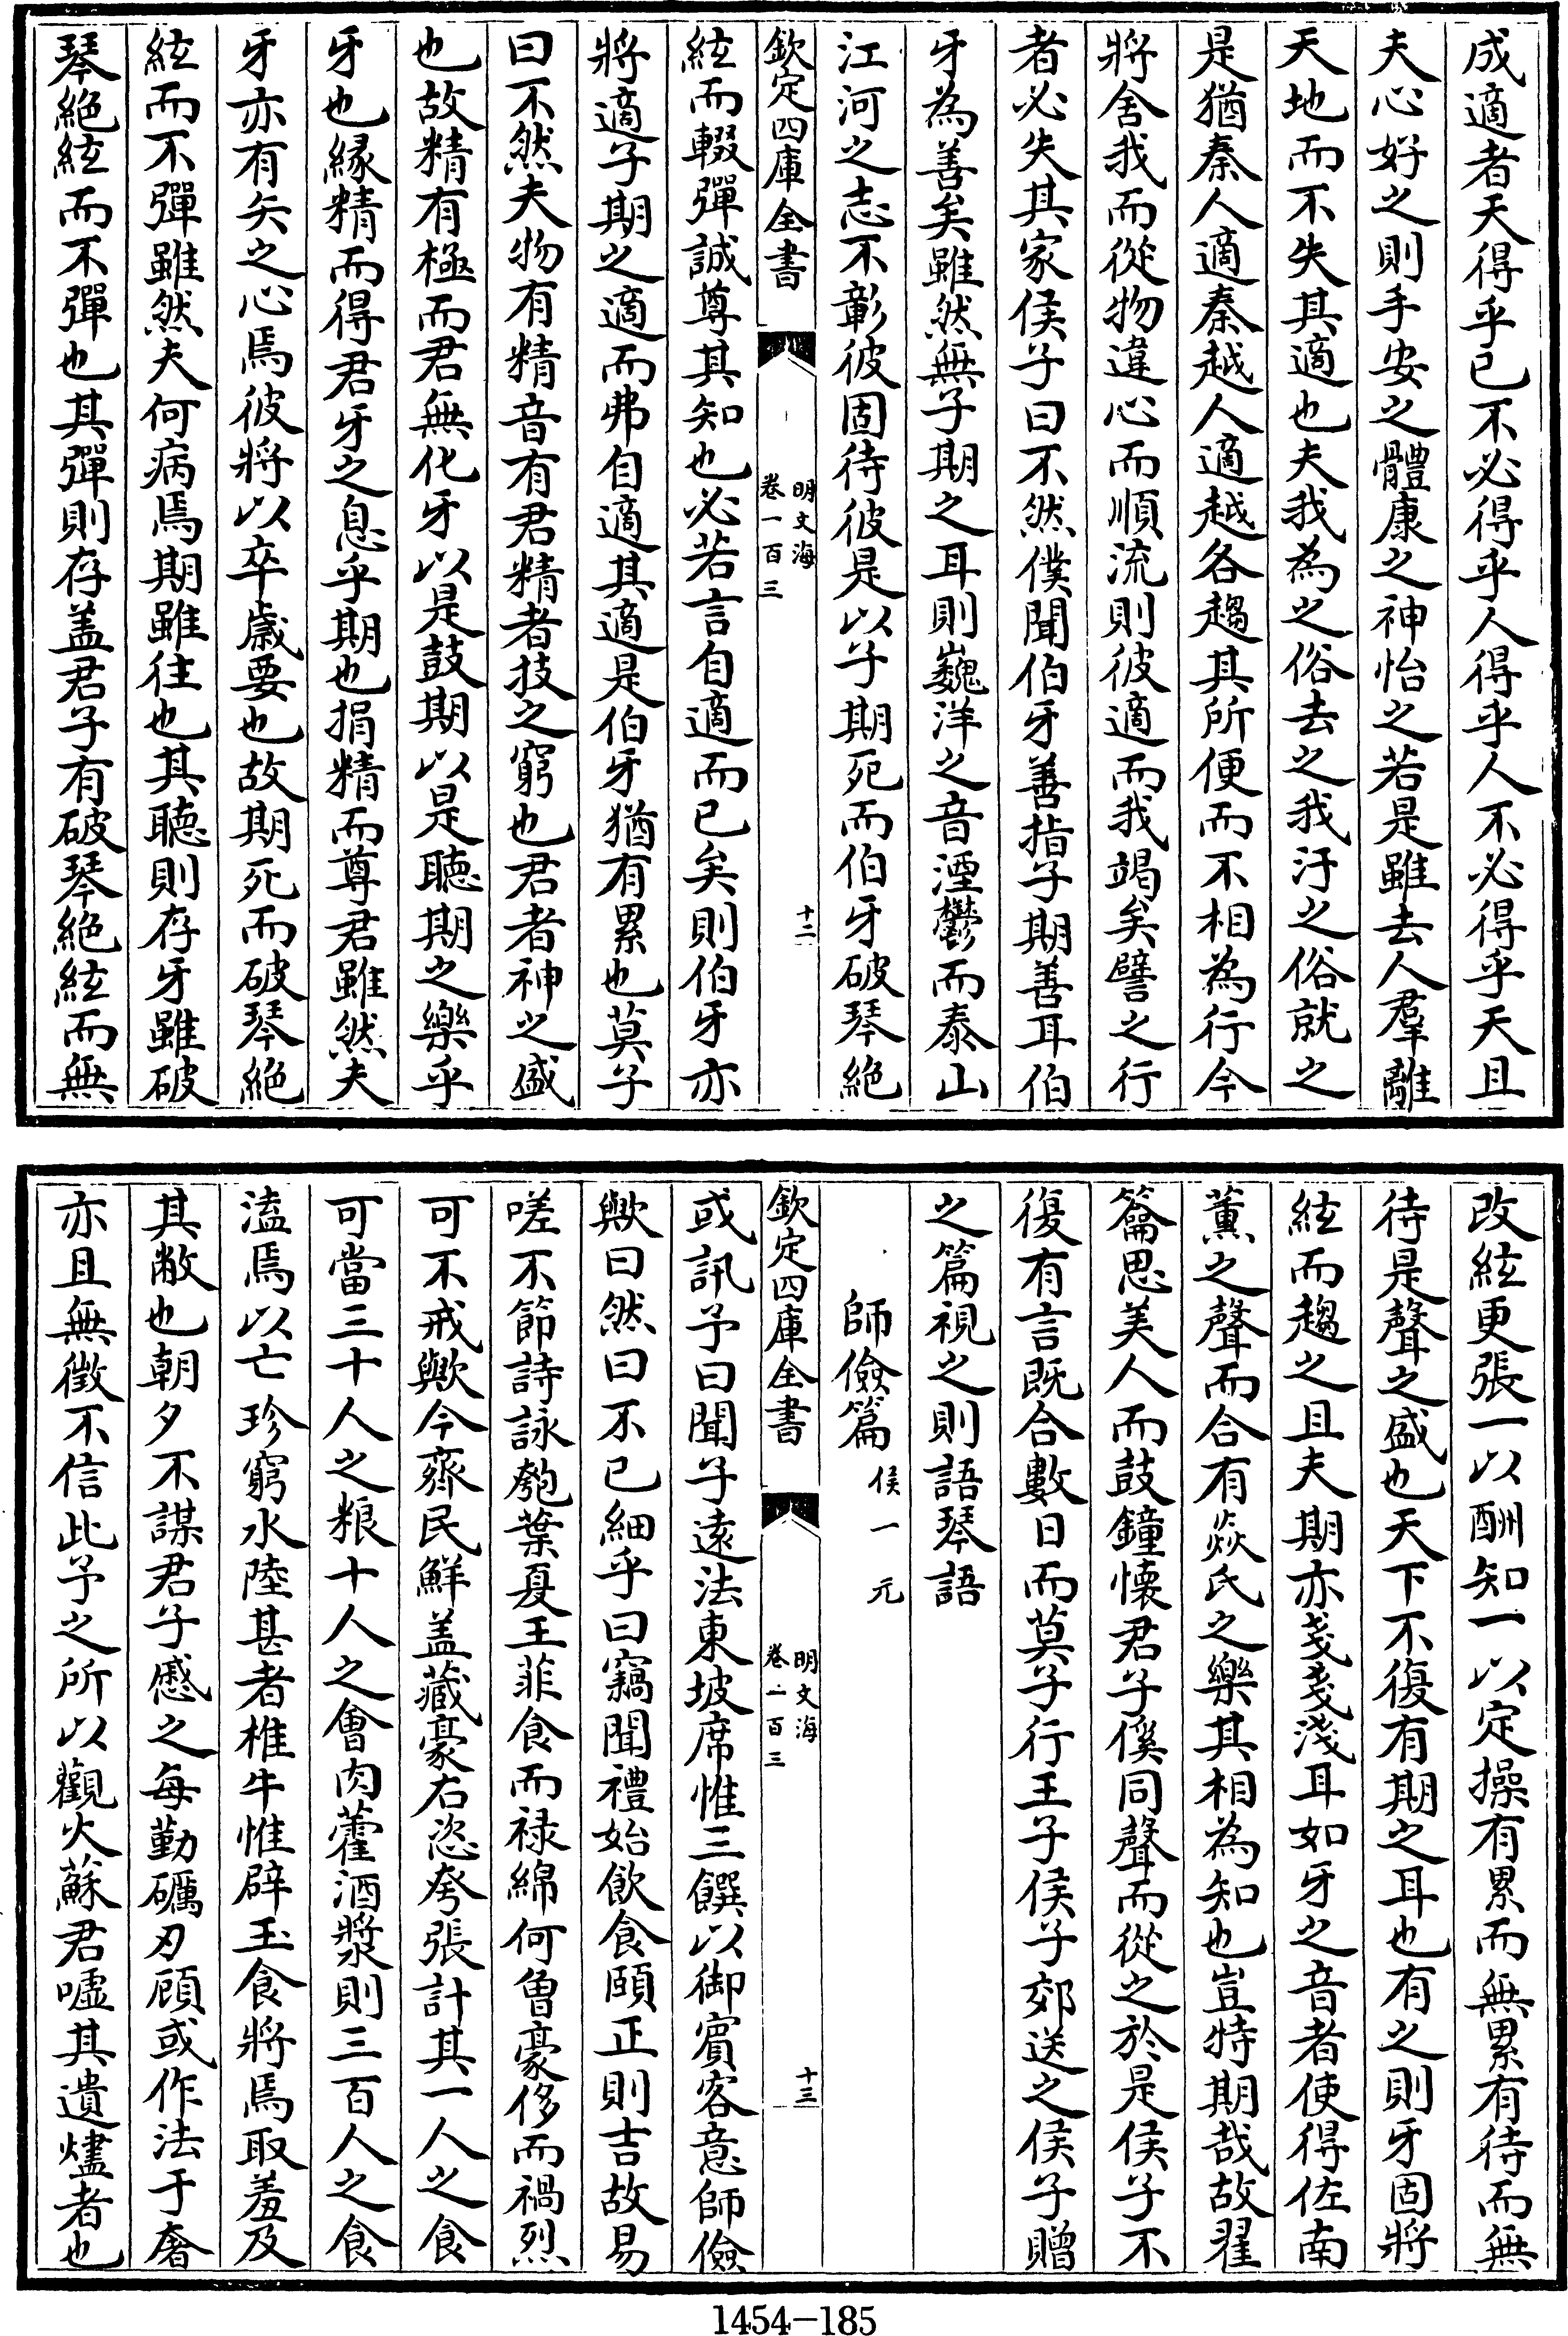 成適者天得乎已不必得乎人得乎人不必得乎天且
夫心好之則手安之體康之神怡之若是雖去人羣離
天地而不失其適也夫我為之俗去之我汙之俗就之
是猶秦人適秦越人適越各趨其所便而不相為行今
將舍我而從物違心而順流則彼適而我竭矣譬之行
者必失其家侯子曰不然僕聞伯牙善指子期善耳伯
牙為善矣雖然無子期之耳則巍洋之音湮鬱而泰山
江河之志不彰彼固待彼是以子期死而伯牙破琴絶
欽定四庫全書
明文海
卷一百三
十二
絃而輟彈誠尊其知也必若言自適而已矣則伯牙亦
將適子期之適而弗自適其適是伯牙猶有累也莫子
曰不然夫物有精音有君精者技之窮也君者神之盛
也故精有極而君無化牙以是鼓期以是聽期之樂乎
牙也縁精而得君牙之息乎期也捐精而尊君雖然夫
牙亦有矢之心焉彼將以卒歲要也故期死而破琴絶
絃而不彈雖然夫何病焉期雖往也其聽則存牙雖破
琴絶絃而不彈也其彈則存盖君子有破琴絶絃而無
改絃更張一以酬知一以定操有累而無累有待而無
待是聲之盛也天下不復有期之耳也有之則牙固將
絃而趨之且夫期亦戔戔淺耳如牙之音者使得佐南
薰之聲而合有焱氏之樂其相為知也豈特期哉故翟
籥思美人而鼓鐘懐君子傒同聲而從之於是侯子不
復有言既合數日而莫子行王子侯子郊送之侯子贈
之篇視之則語琴語
師儉篇 侯一元
欽定四庫全書
明文海
卷一百三
十三
或訊予曰聞子逺法東坡席惟三饌以御賓客意師儉
歟曰然曰不已細乎曰竊聞禮始飲食頤正則吉故易
嗟不節詩詠匏葉夏王菲食而禄綿何曾豪侈而禍烈
可不戒歟今齊民鮮盖藏豪右恣夸張計其一人之食
可當三十人之粮十人之會肉藿酒漿則三百人之食
溘焉以亡珍窮水陸甚者椎牛惟辟玉食將焉取羞及
其敝也朝夕不謀君子慼之每勤礪刃顧或作法于奢
亦且無徵不信此予之所以觀火蘇君嘘其遺燼者也
1454-185